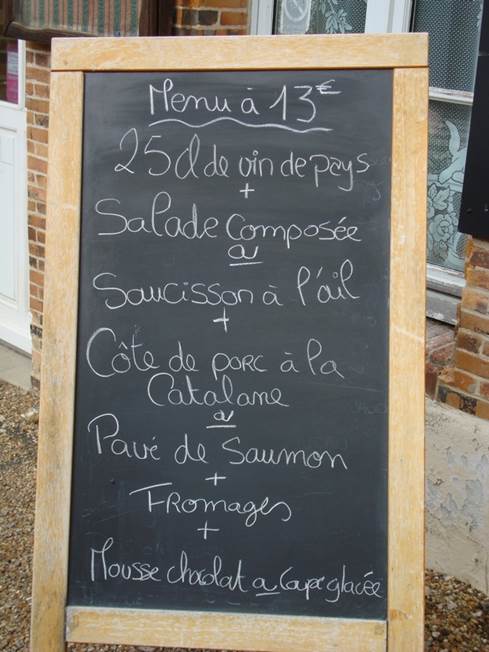 Menu à 13€
25cl de vin de pays
+
Salade Composée
ou
Saucisson à l'ail
+
Côte de porc à la
Catalane
ou
Pavé de Saumon
+
Fromages
+
Mousse chocolat ou Coupe glacée